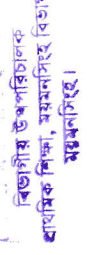 বিভাগীয় উপপরিচালক
প্রাথমিক শিক্ষা, ময়মনসিংহ বিভাগ
ময়মনসিংহ।